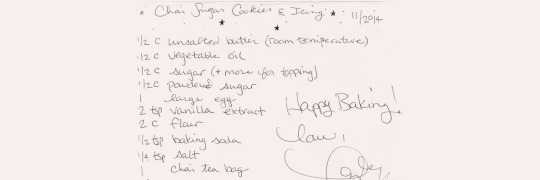 * Chai Sugar Cookies & Icing * 11/2014
1/2 c unsalted butter (room temperature)
1/2 c vegetable oil
1/2 c sugar (+ more for topping)
1/2 c powdered sugar
1 large egg
2 tsp vanilla extract
2 c flour
1/2 tsp baking soda
1/4 tsp salt
1 chai tea bag
Happy Baking!
Love,